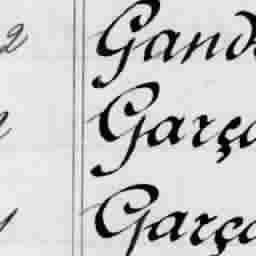 2 Gand
Garça
Garça